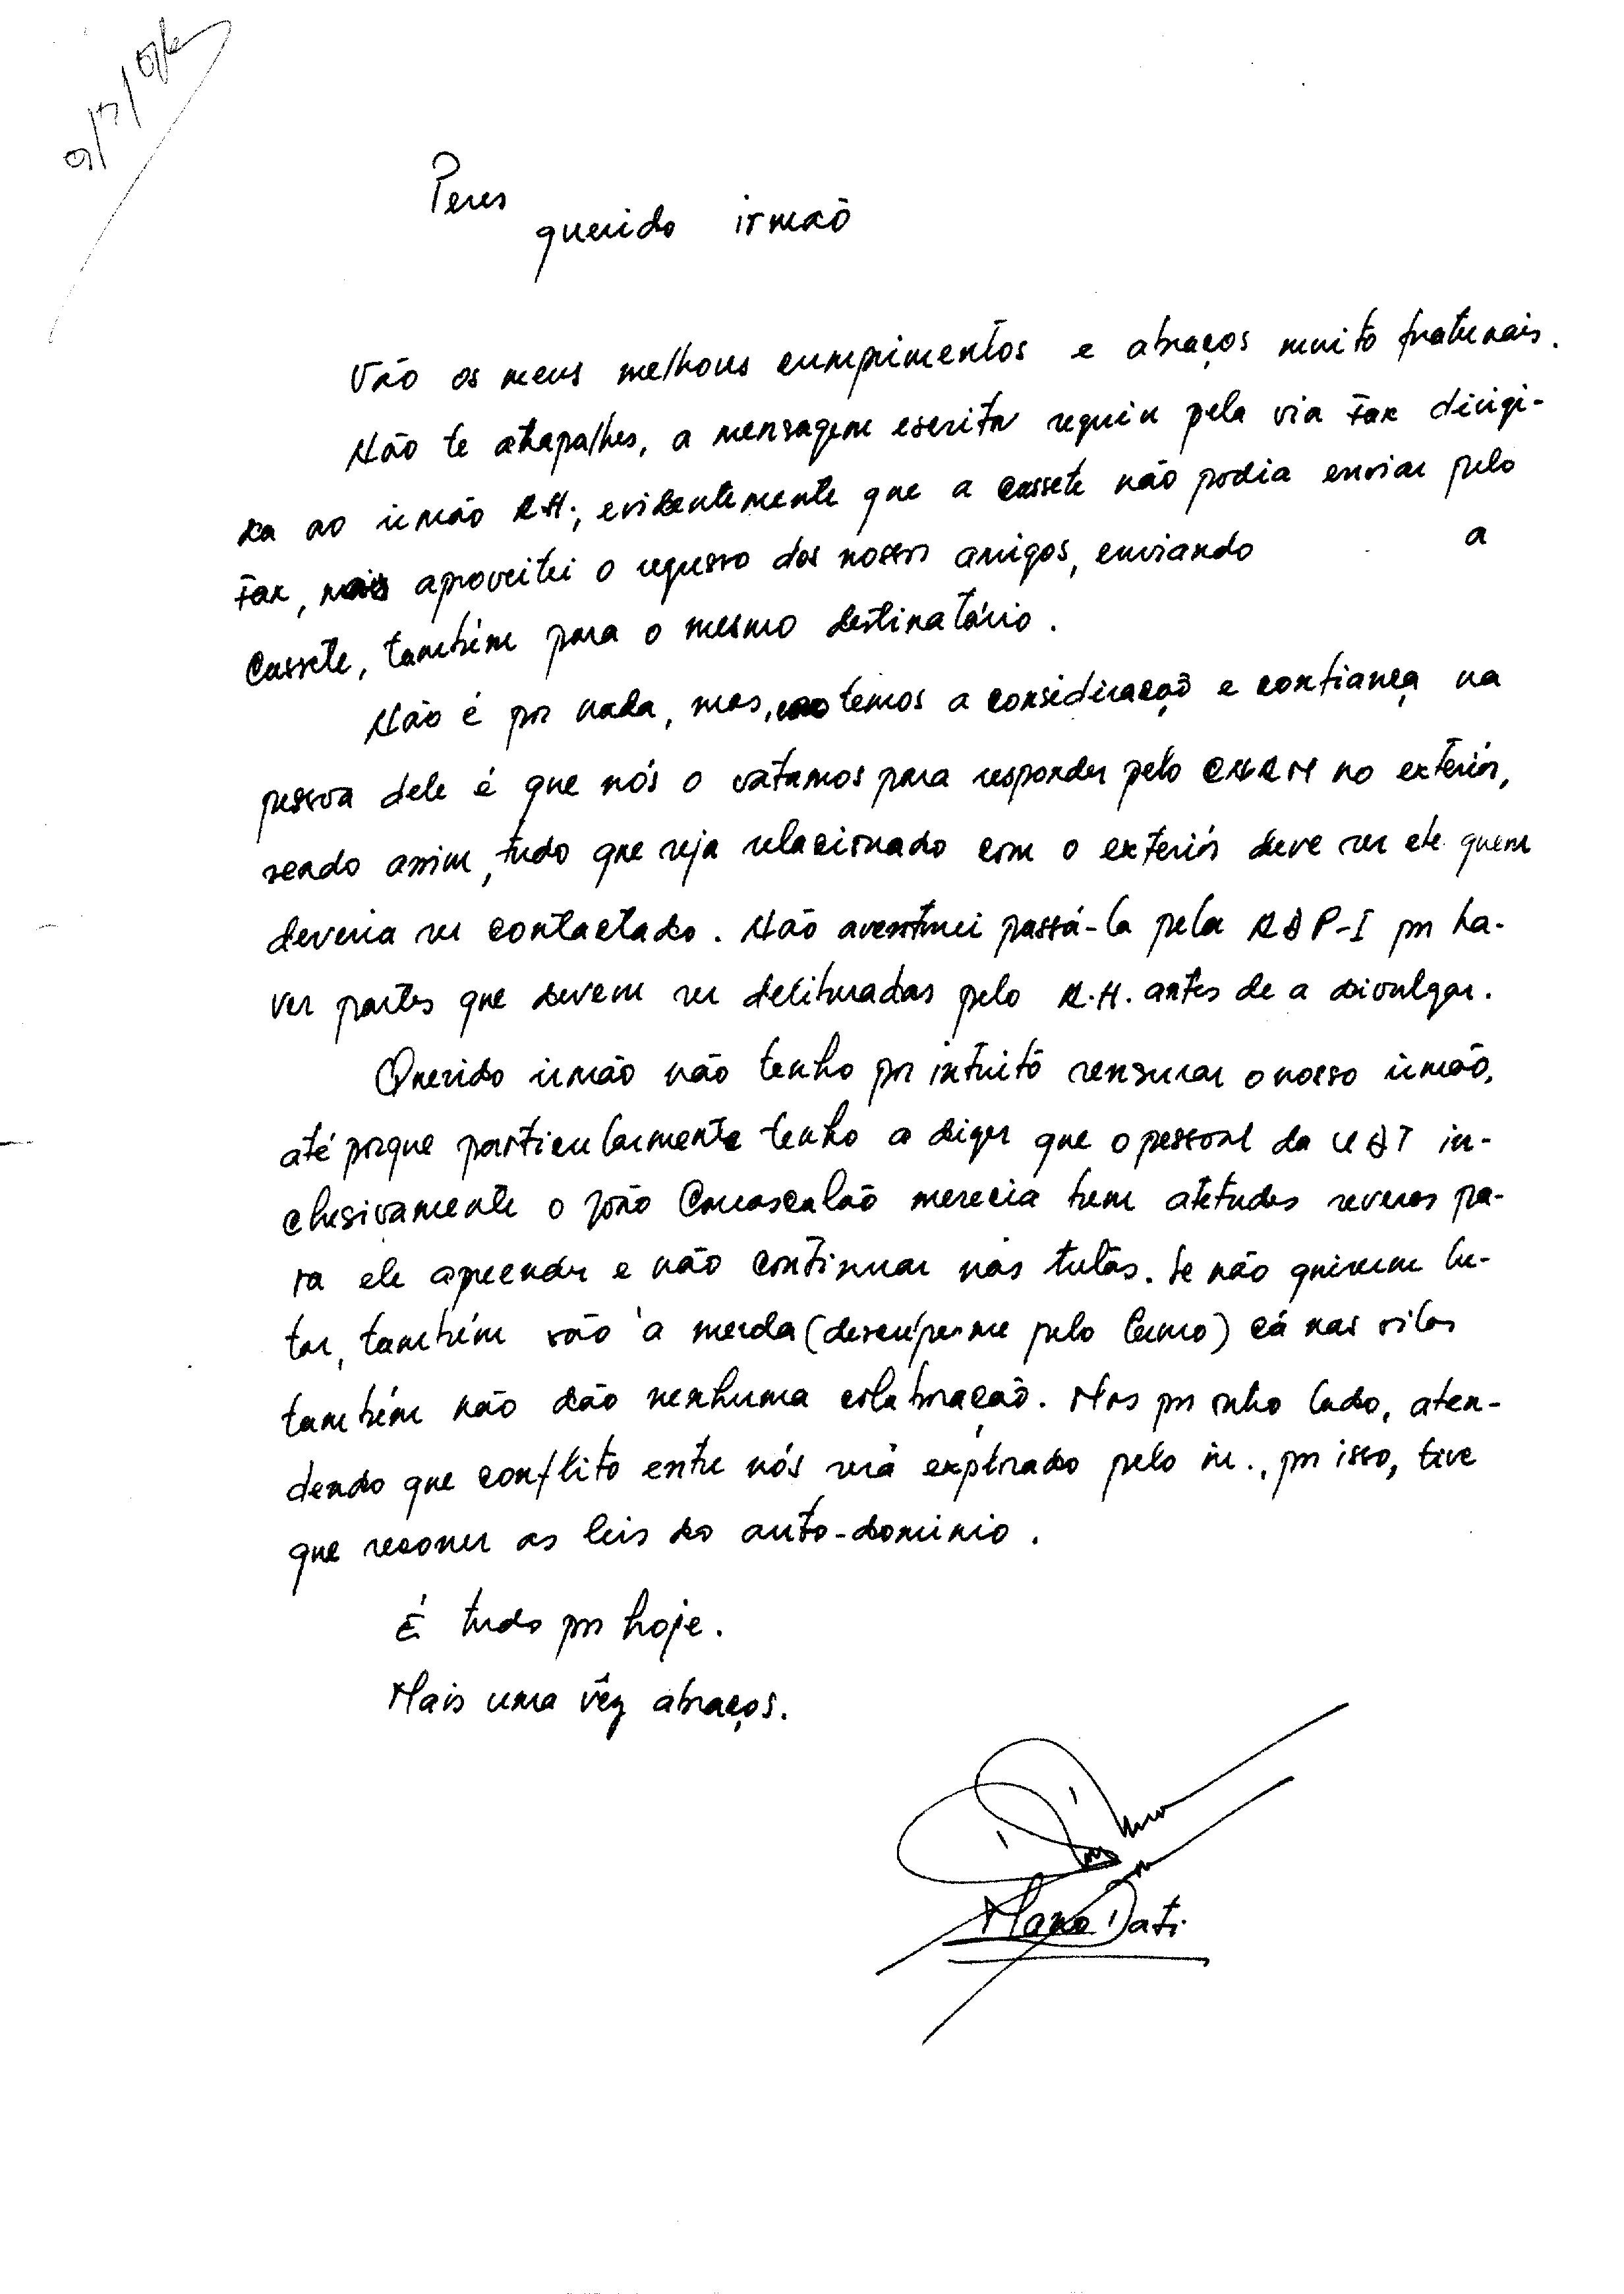 Peres
querido irmão
Vão os meus melhores cumprimentos e abraços muito fraternais.
Não te atrapalhes, a mensagem escrita seguiu pela via Fax dirigi-
da ao irmão R.H.; evidentemente que a cassete não podia enviar pelo
Fax, mais aproveitei o regresso dos nossos amigos, enviando a
Cassete, também para o mesmo destinatário.
Não é por nada, mas, temos a consideração e confiança na
pessoa dele é que nós o votamos para responder pelo CNRM no exteriór,
sendo assim, tudo que seja relacionado com o exteriór deve ser ele quem
deveria ser contactado. Não aventurei passá-la pela RDP-I por ha-
ver partes que devem ser deliberadas pelo R.H. antes de a divulgar.
Querido irmão não tenho por intuito sensurar o nosso irmão,
até porque particularmente tenho a dizer que o pessoal da UDT in-
clusivamente o João Carrascalão merecia bem atetudes severas pa-
ra ele apreender e não continuar nas tretas. Se não querem lu-
tar, também vão à merda (desculpe-me pelo termo) cá nas vilas
também não dão nenhuma colaboração. Mas por outro lado, aten-
dendo que conflito entre nós será explorado pelo in., por isso, tive
que recorrer as leis do auto-dominio.
É tudo por hoje.
Mais uma vêz abraços.
Mano Dati